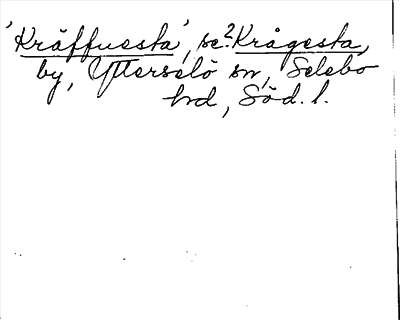 'Kräffuesta', se? Krågesta,
by, Ytterselö sn, Selebo
hd, Söd. l.